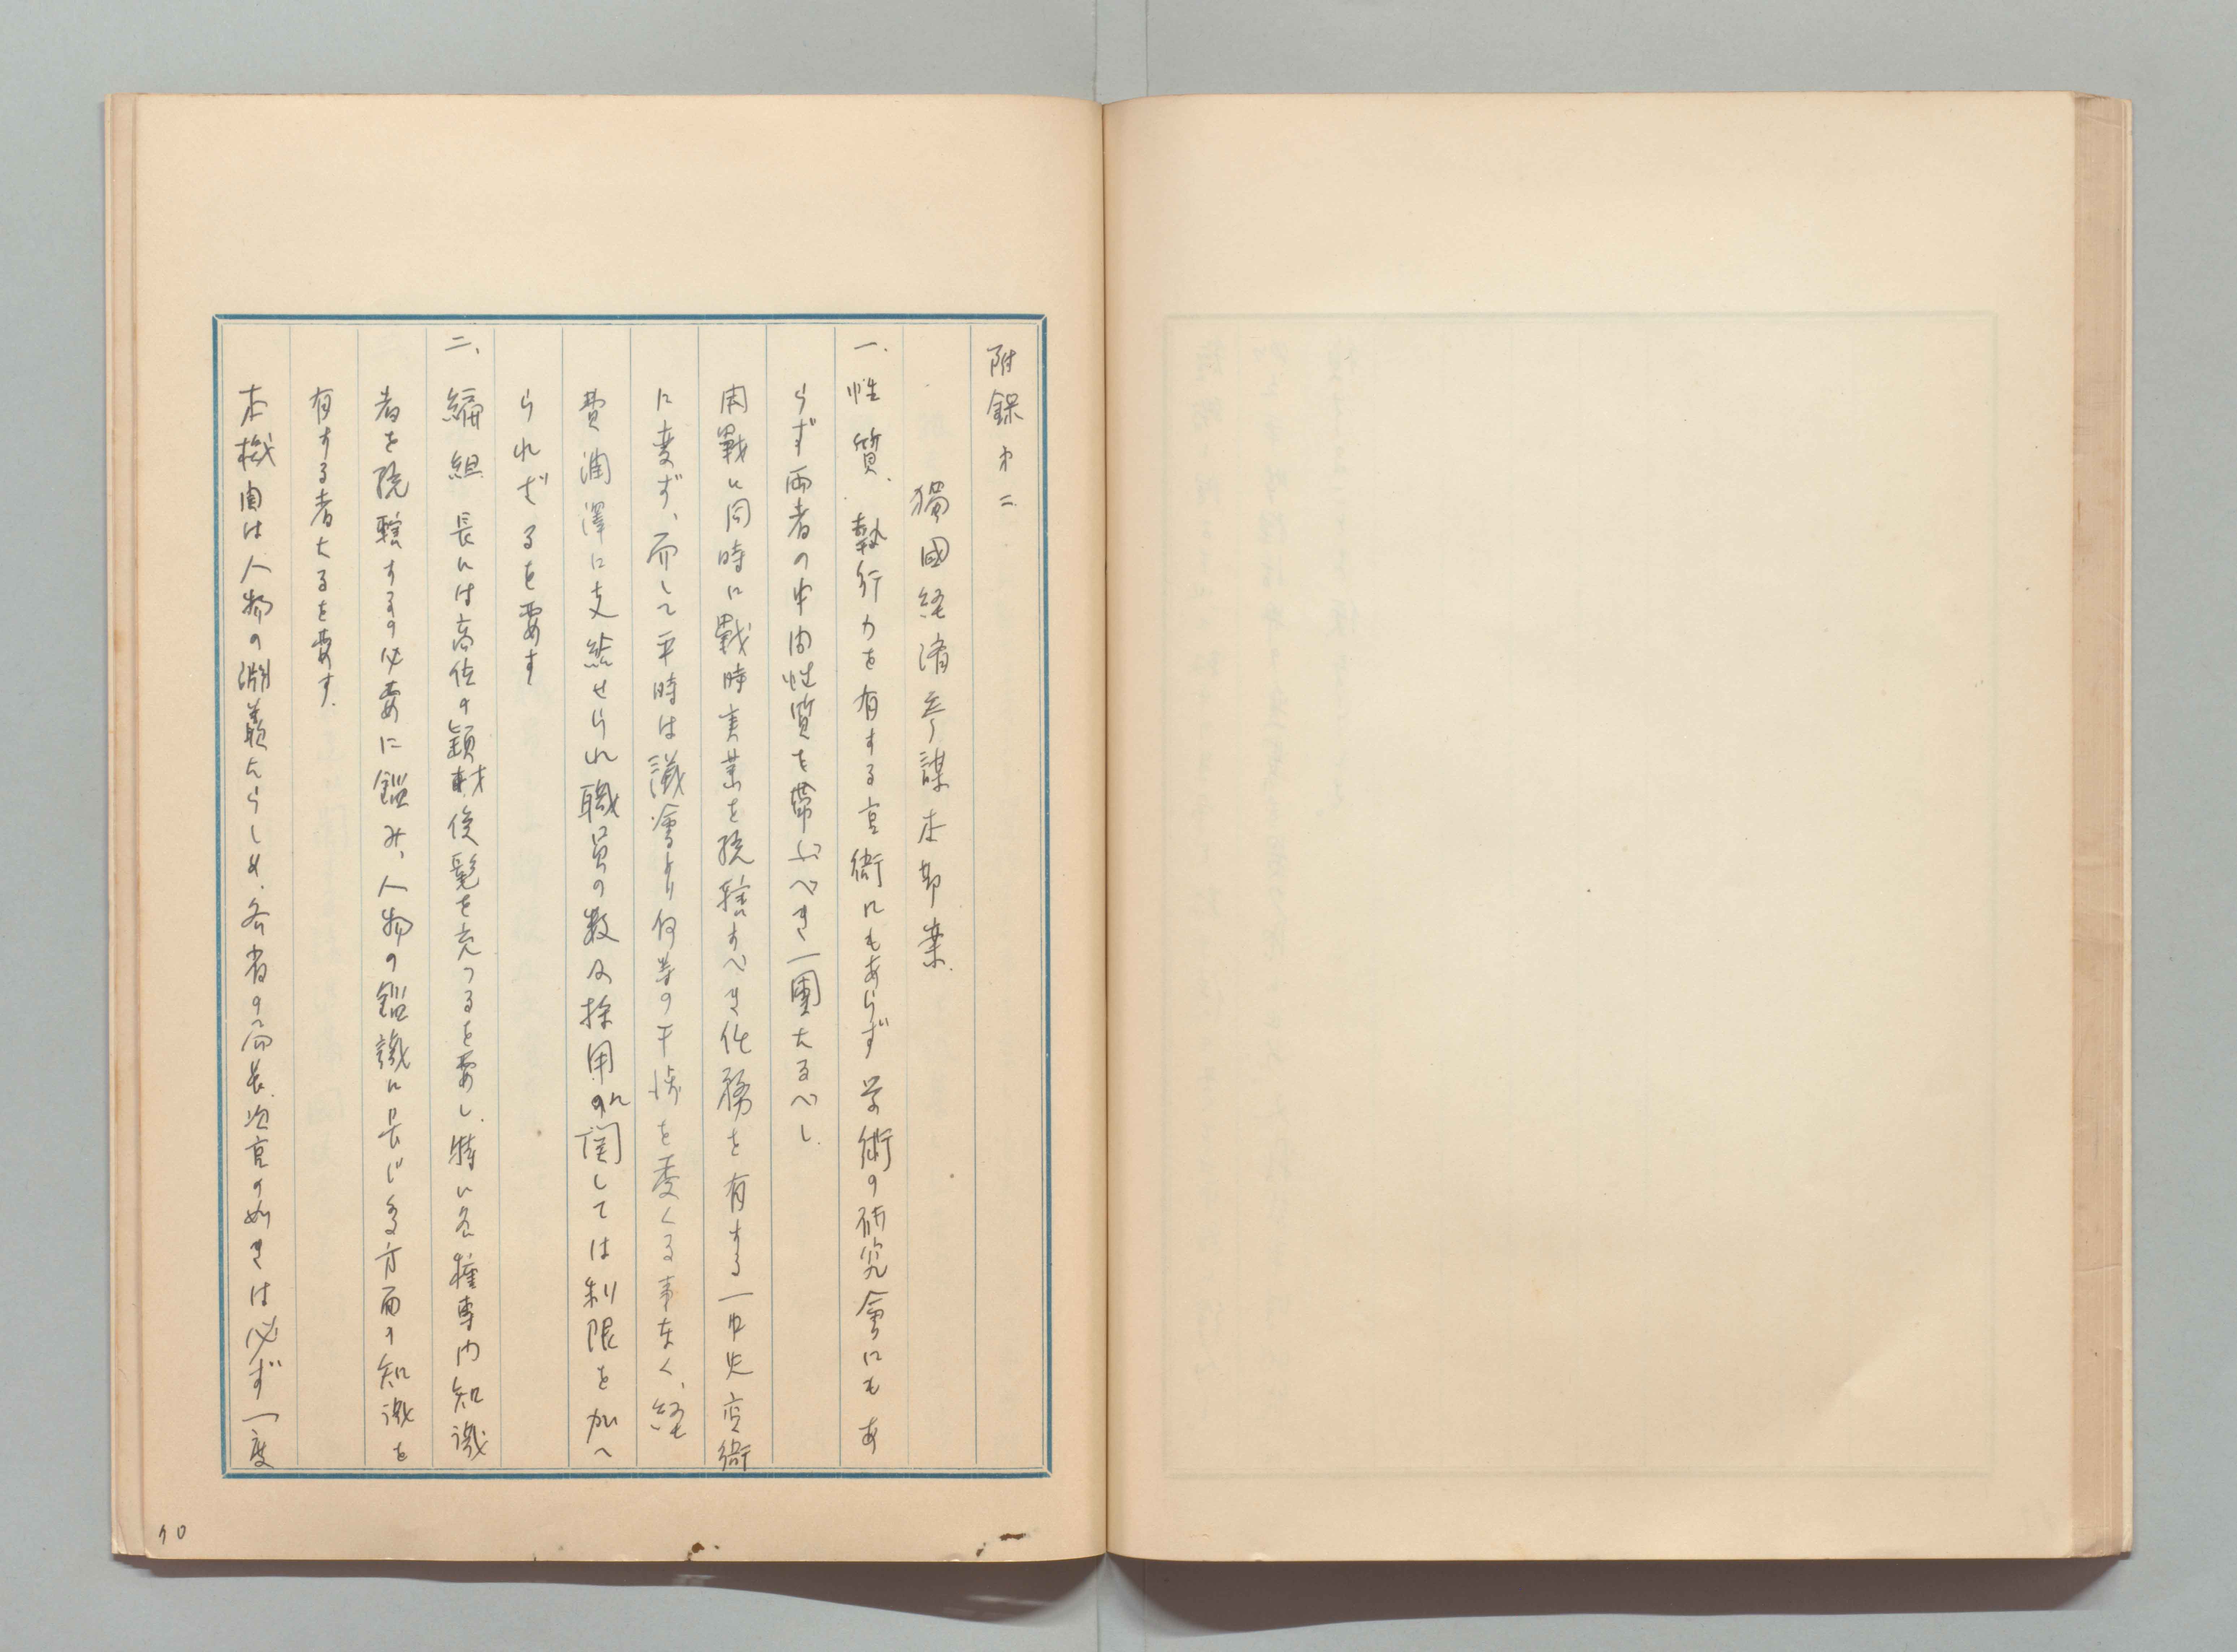 附録才二
獨國経済参謀本部案
一、性質、執行力を有する官衙にもあらず学術の研究會にもあ
らず両者の中間性質を帯ぶべき一團たるべし
開戰と同時に戰時事業を統轄すべき任務を有する一中央官衙
に変ず、而して平時は議會より何等の干渉を受くる事なく、経
費潤澤に支給せられ職員の数及採用に関しては制限を加へ
られざるを要す
二、編組 長には高位の穎材俊髦を充つるを要し、特に各種専門知識
者を統轄するの必要に鑑み、人物の鑑識に長じ多方面の知識を
有する者たるを要す、
本機関は人物の淵叢たらしめ、各省の局長、次官の如きは必ず一度
70